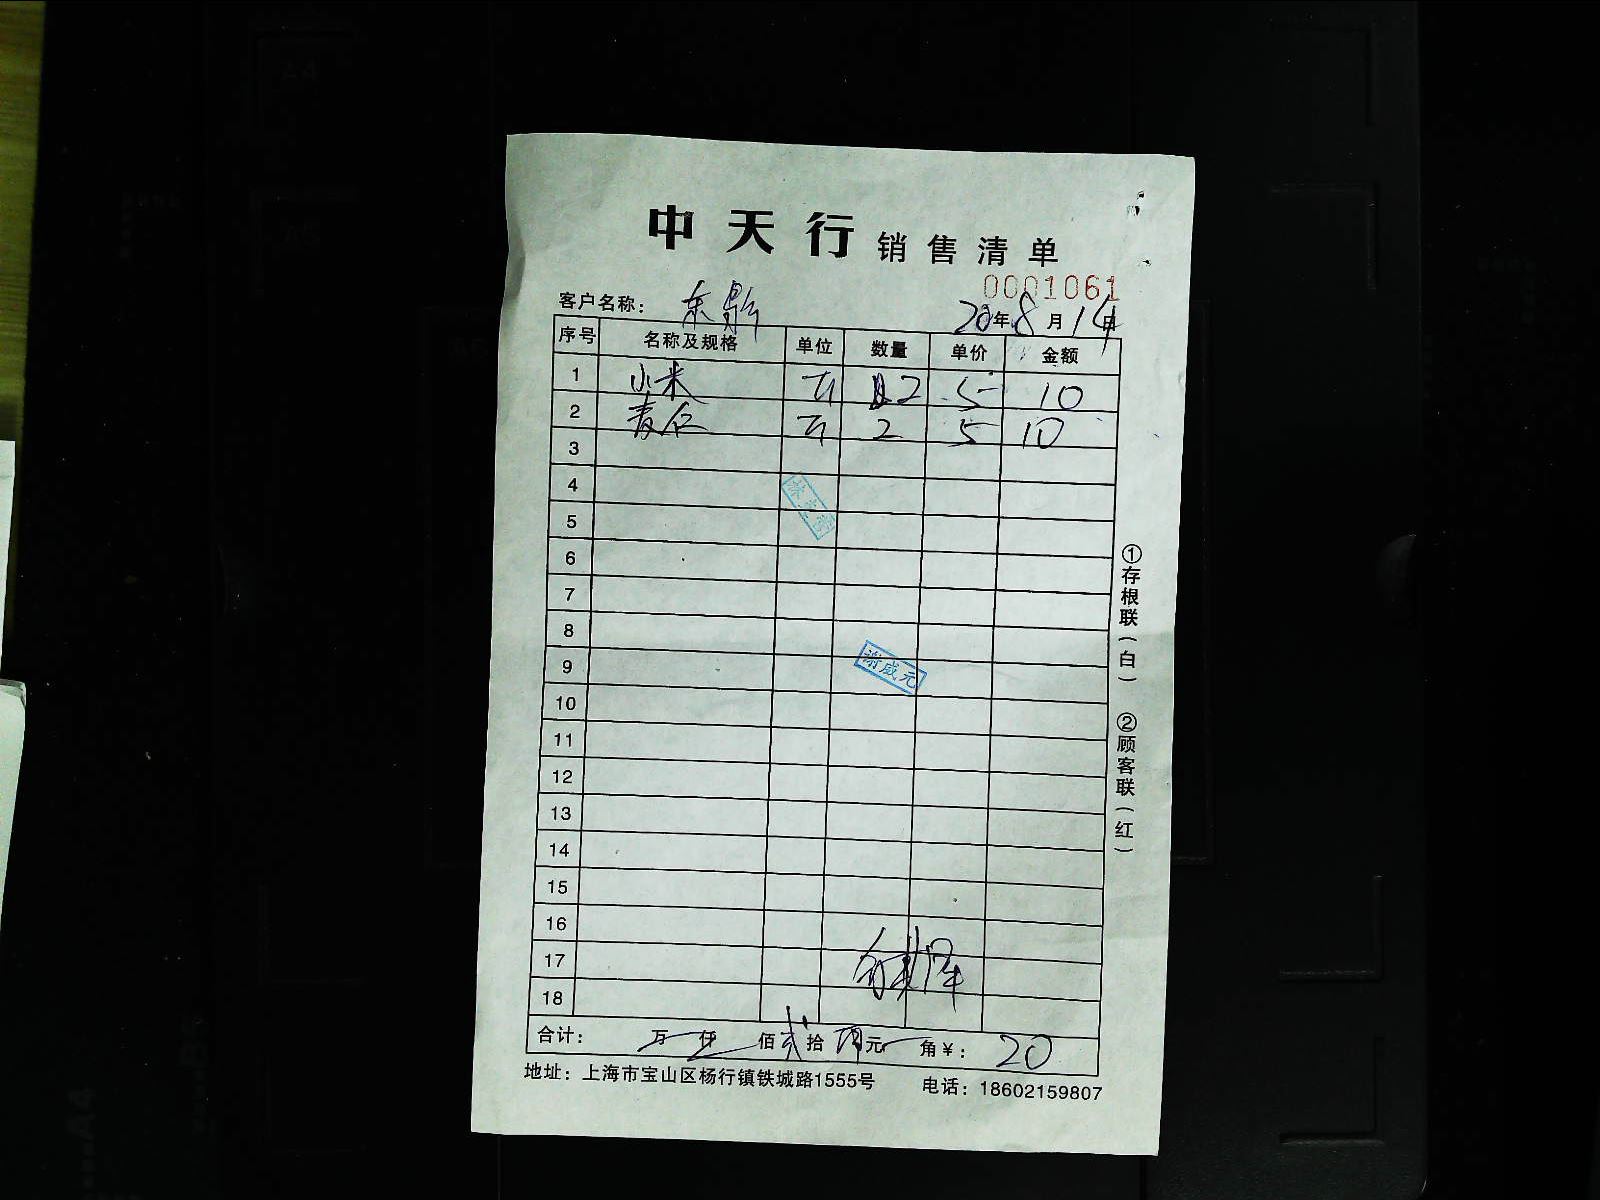 中天行 销售清单
0001061
客户名称： 东
20年8月14日
序号 名称及规格 单位 数量 单价 金额
1 小米 斤 2 5 10
2 麦仁 斤 2 5 10
3
4
5
6
7
8
谢成元
9
10
11
12
13
14
15
16
17
18
合计： 万 仟 佰 贰 拾 元 角 ¥： 20
地址：上海市宝山区杨行镇铁城路1555号 电话：18602159807
①存根联（白） ②顾客联（红）